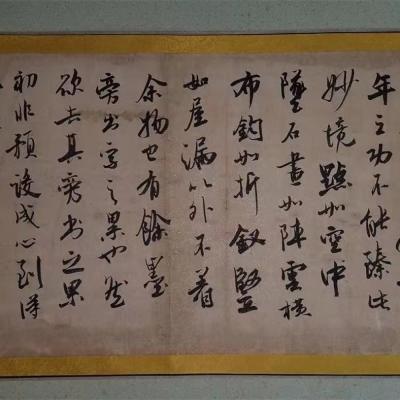 年之功不能臻此
妙境點如空中
墜石畫如陣雲橫
布鈎如折釵豎
如屋漏以外不着
余物也有餘墨
旁出字之累也然
欲去其旁出之累
初非預設成心到得